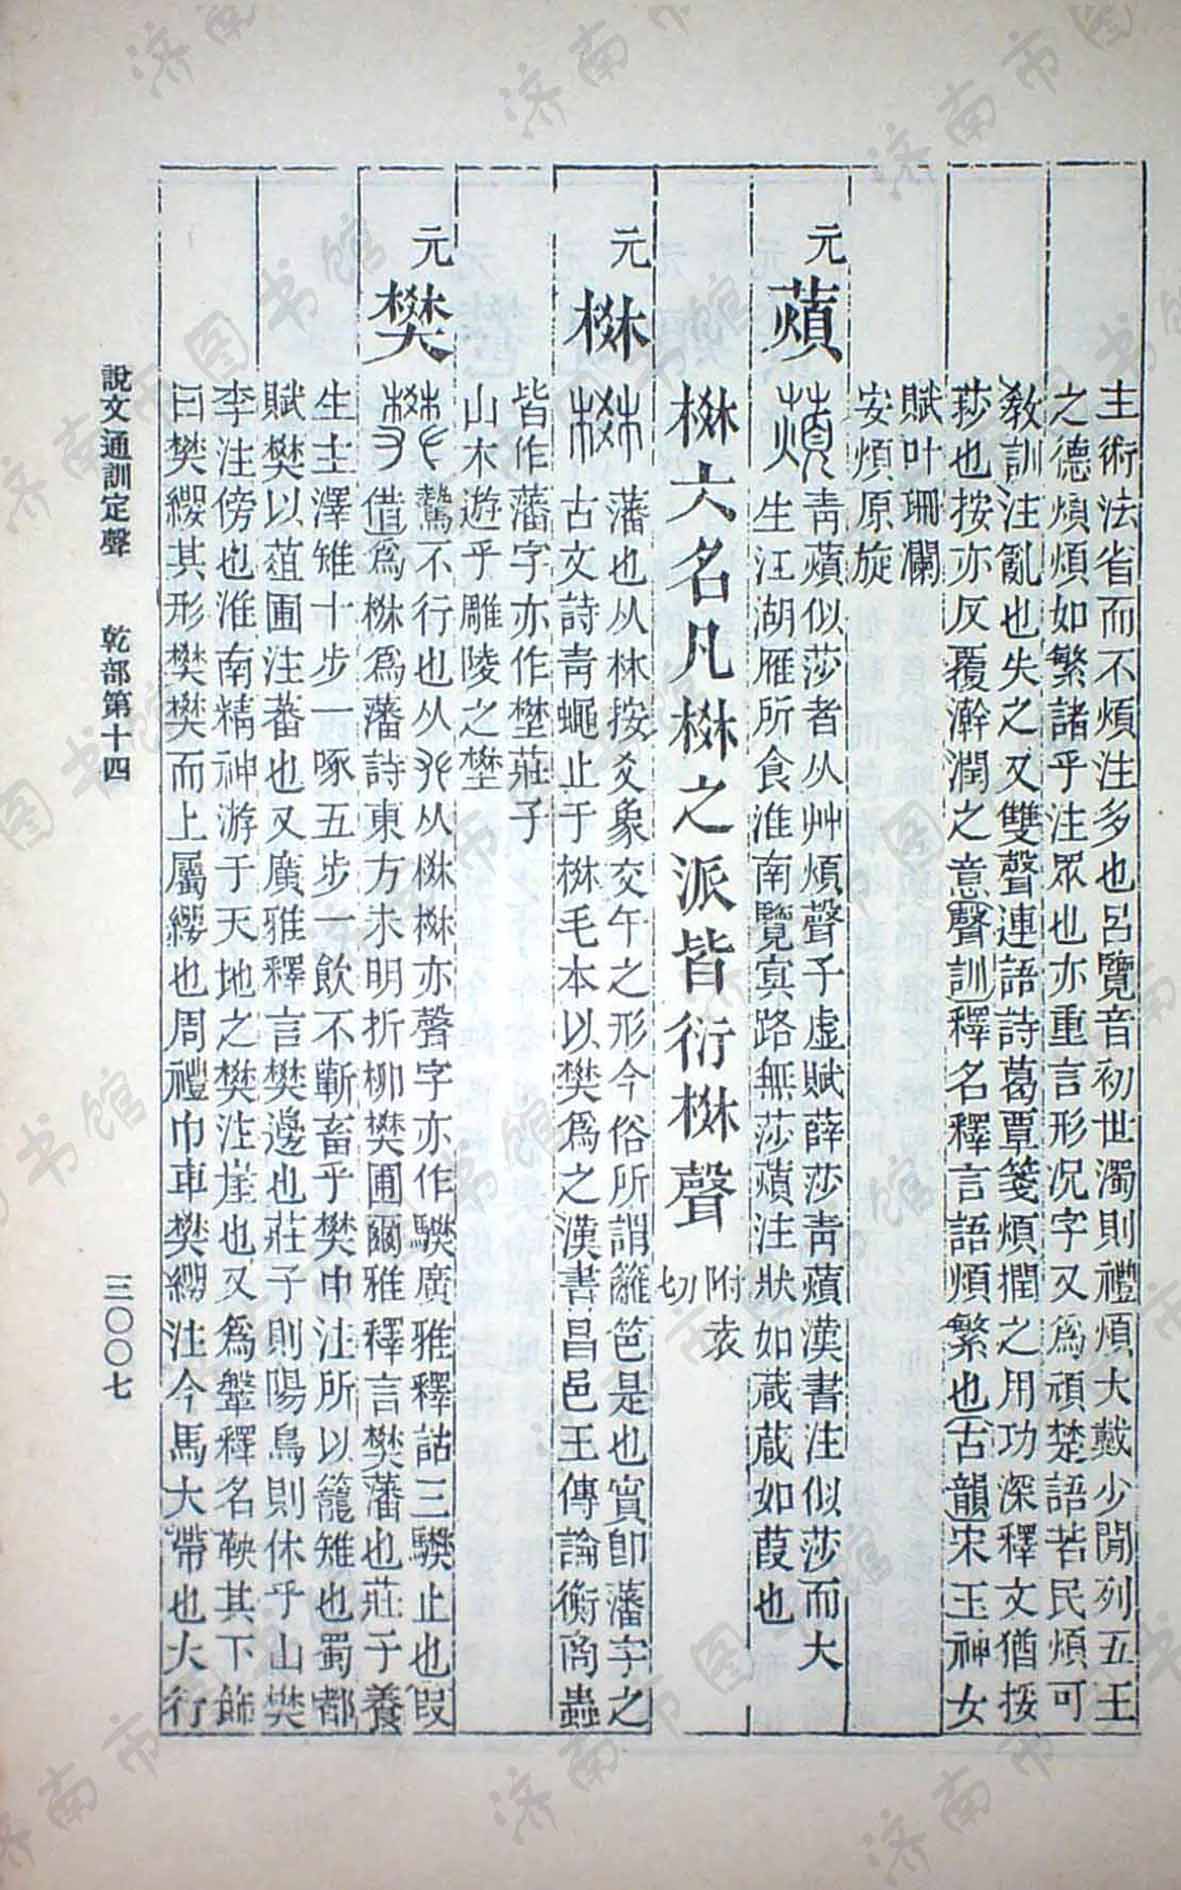 主術法省而不煩注多也呂覽音初世濁則禮煩大戴少閒列五王
之德煩煩如繁諸乎注眾也亦重言形况字又爲頑楚語若民煩可
敎訓注亂也失之又雙聲連語詩葛覃箋煩撋之用功深釋文猶挼
莎也按亦反覆澣潤之意聲訓釋名釋言語煩繁也古韻宋玉神女
賦叶珊瀾
安煩原旋
元
薠
青薠似莎者从艸煩聲子虛賦薛莎青薠漢書注似莎而大
生江湖雁所食淮南覽冥路無莎薠注狀如葴葴如葭也
棥六名凡棥之派皆衍棥聲
附袁
切
元
棥
藩也从林按爻象交午之形今俗所謂籬笆是也實卽藩字之
古文詩青蠅止于棥毛本以樊爲之漢書昌邑王傳論衡商蟲
皆作藩字亦作壄莊子
山木遊乎雕陵之樊
元
樊
騺不行也从𠬜从棥棥亦聲字亦作䮳廣雅釋詁三䮳止也叚
借爲棥爲藩詩東方未明折柳樊圃爾雅釋言樊藩也莊子養
生主澤雉十步一啄五步一飲不蘄畜乎樊中注所以籠雉也蜀都
賦樊以蒩圃注蕃也又廣雅釋言樊邊也莊子則陽烏則休乎山樊
李注傍也淮南精神游于天地之樊注崖也又爲鞶釋名鞅其下飾
曰樊纓其形樊樊而上屬纓也周禮巾車樊纓注今馬大帶也大行
說文通訓定聲 乾部第十四 三〇〇七
济南市图书馆